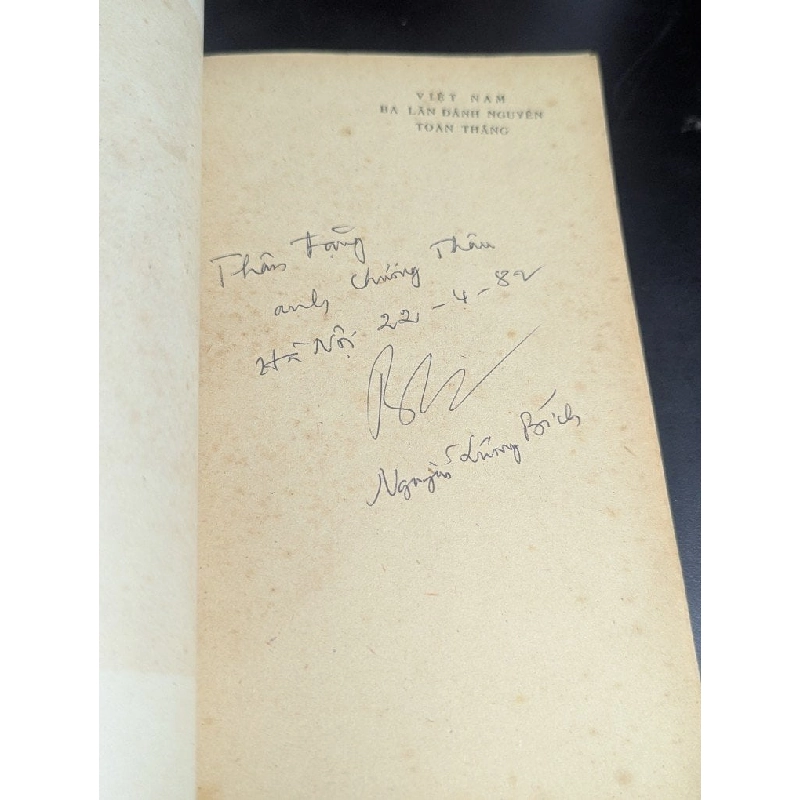 VIỆT NAM
BA LẦN ĐÁNH NGUYÊN
TOÀN THẮNG
Thân tặng
anh Chương Thâu
Hà Nội 22-4-82
Nguyễn Lương Bích